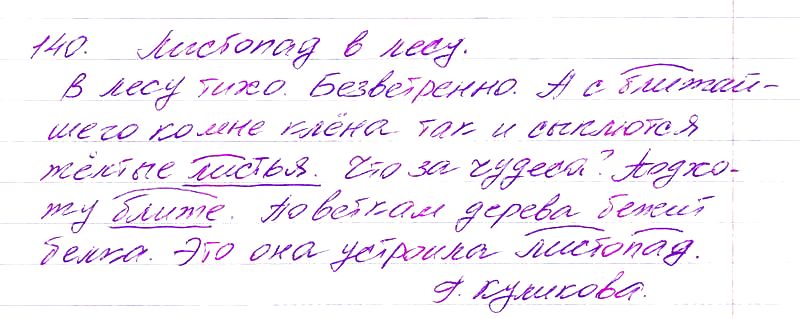 140. Листопад в лесу.
В лесу тихо. Безветренно. А с ближай-
шего ко мне клёна так и сыплются
жёлтые листья. Что за чудеса? Подхо-
жу ближе. По веткам дерева бежит
белка. Это она устроила листопад.
Г. Куликова.